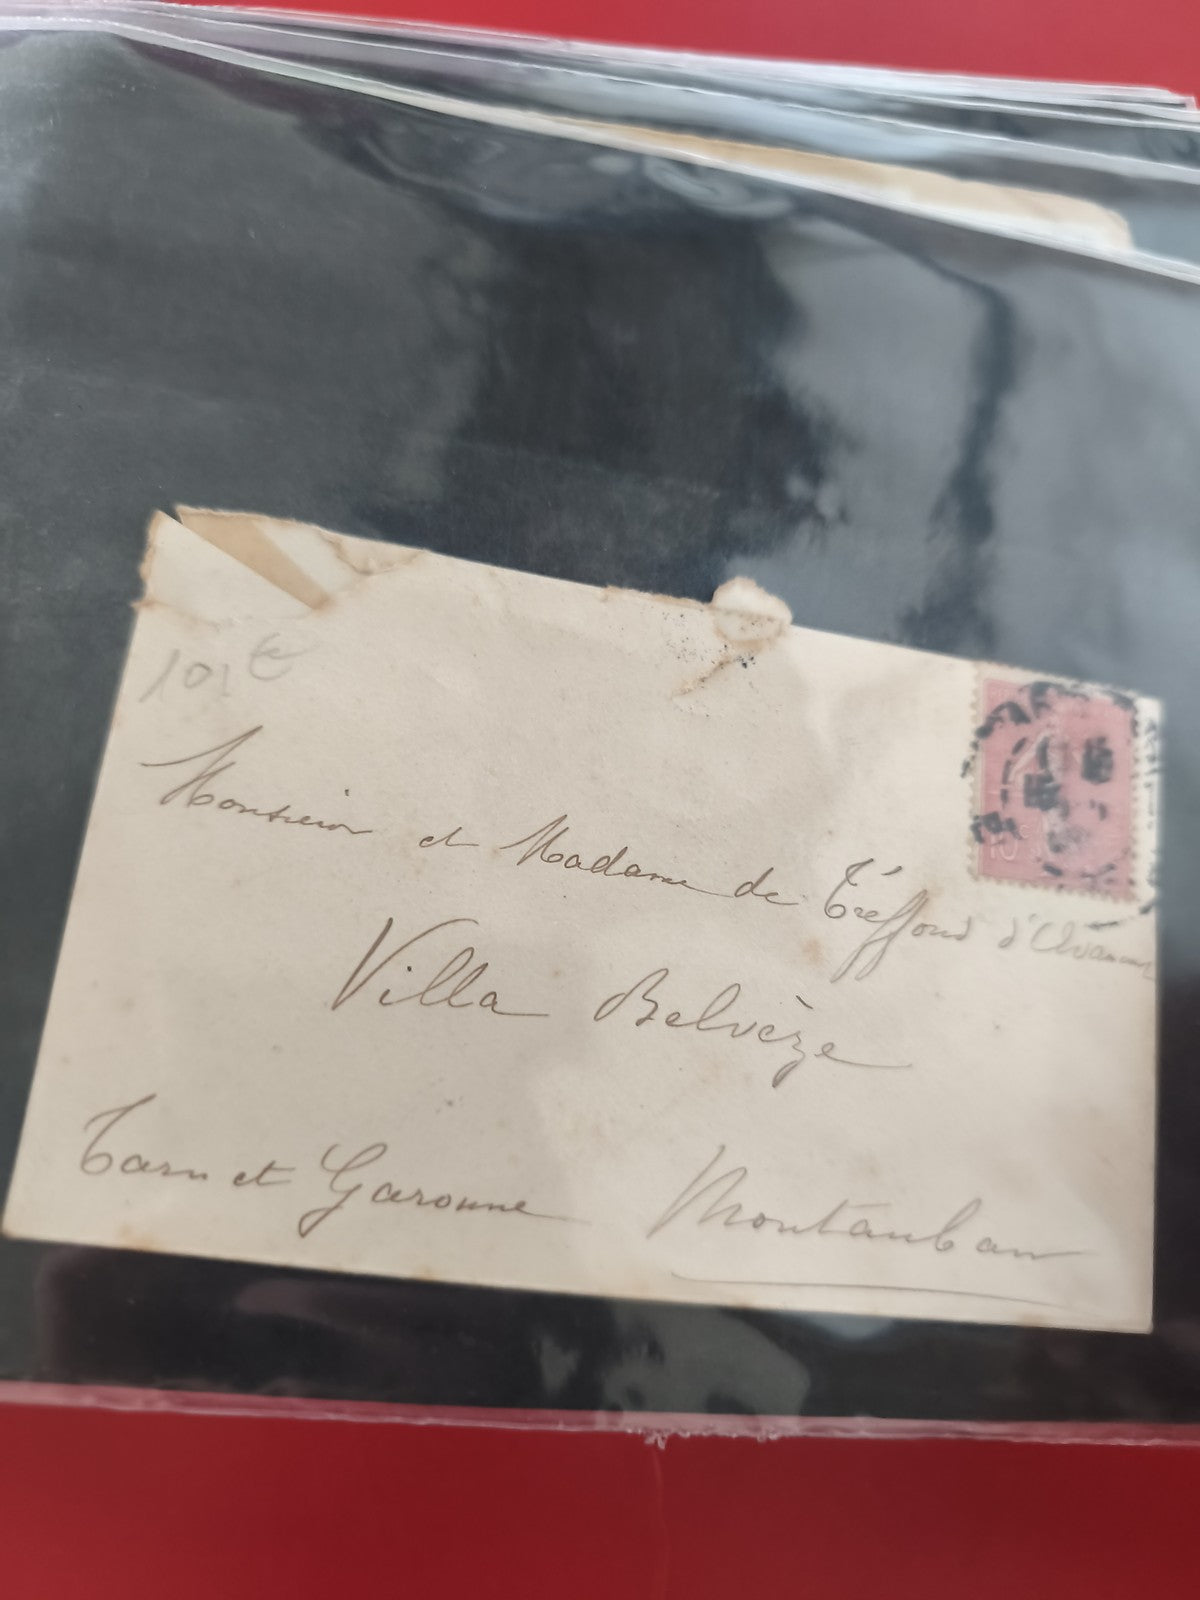 101
Monsieur et Madame de Tréffond d'
Villa Belvèze
Tarn et Garonne Montauban
10c